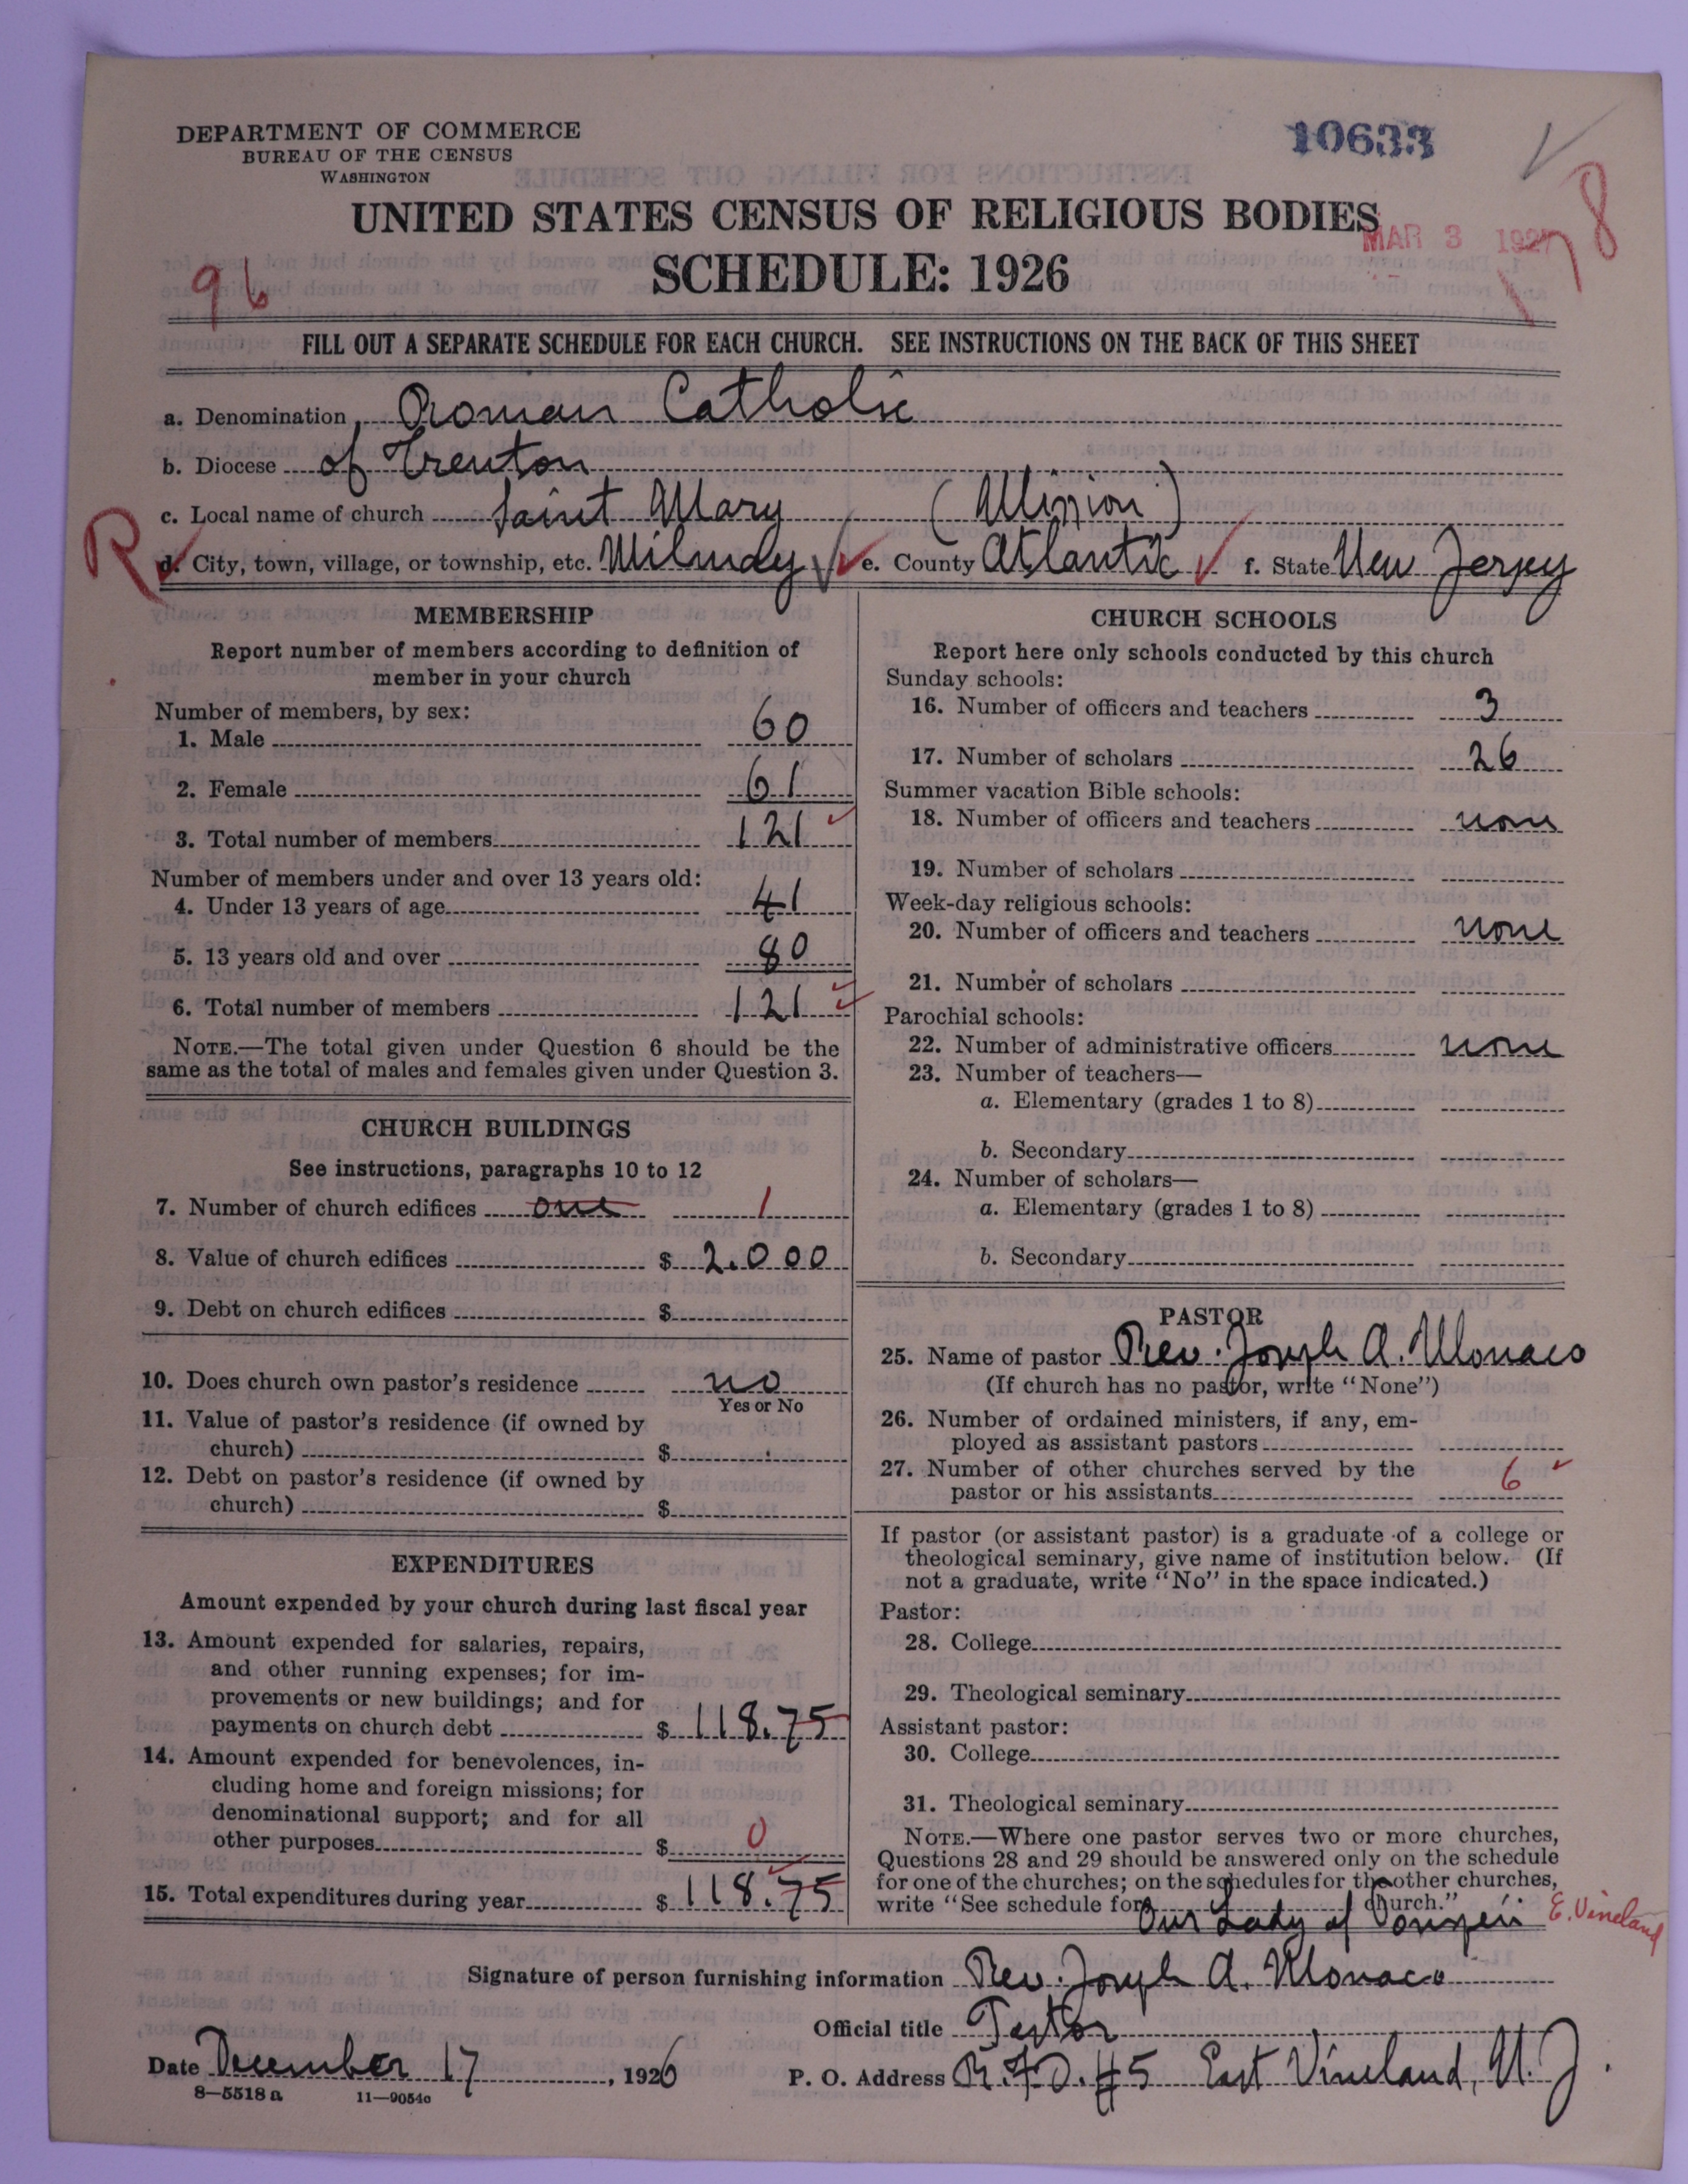 DEPARTMENT OF COMMERCE
BUREAU OF THE CENSUS
WASHINGTON
10633
UNITED STATES CENSUS OF RELIGIOUS BODIES
MAR 3 1927
8
96
SCHEDULE: 1926
FILL OUT A SEPARATE SCHEDULE FOR EACH CHURCH. SEE INSTRUCTIONS ON THE BACK OF THIS SHEET
a. Denomination Roman Catholic
b. Diocese of Trenton
c. Local name of church Saint Mary (Mission)
R
d. City, town, village, or township, etc. Milmay e. County Atlantic f. State New Jersey
MEMBERSHIP
Report number of members according to definition of
member in your church
Number of members, by sex:
1. Male 60
2. Female 61
3. Total number of members 121
Number of members under and over 13 years old:
4. Under 13 years of age 41
5. 13 years old and over 80
6. Total number of members 121
NOTE.—The total given under Question 6 should be the
same as the total of males and females given under Question 3.
CHURCH BUILDINGS
See instructions, paragraphs 10 to 12
7. Number of church edifices one 1
8. Value of church edifices $ 2.000
9. Debt on church edifices $
10. Does church own pastor's residence no
Yes or No
11. Value of pastor's residence (if owned by
church) $
12. Debt on pastor's residence (if owned by
church) $
EXPENDITURES
Amount expended by your church during last fiscal year
13. Amount expended for salaries, repairs,
and other running expenses; for im-
provements or new buildings; and for
payments on church debt $ 118.75
14. Amount expended for benevolences, in-
cluding home and foreign missions; for
denominational support; and for all
other purposes $ 0
15. Total expenditures during year $ 118.75
CHURCH SCHOOLS
Report here only schools conducted by this church
Sunday schools:
16. Number of officers and teachers 3
17. Number of scholars 26
Summer vacation Bible schools:
18. Number of officers and teachers non
19. Number of scholars
Week-day religious schools:
20. Number of officers and teachers none
21. Number of scholars
Parochial schools:
22. Number of administrative officers none
23. Number of teachers—
a. Elementary (grades 1 to 8)
b. Secondary
24. Number of scholars—
a. Elementary (grades 1 to 8)
b. Secondary
PASTOR
25. Name of pastor Rev. Joseph A. Monaco
(If church has no pastor, write "None")
26. Number of ordained ministers, if any, em-
ployed as assistant pastors
27. Number of other churches served by the
pastor or his assistants 6
If pastor (or assistant pastor) is a graduate of a college or
theological seminary, give name of institution below. (If
not a graduate, write "No" in the space indicated.)
Pastor:
28. College
29. Theological seminary
Assistant pastor:
30. College
31. Theological seminary
NOTE.—Where one pastor serves two or more churches,
Questions 28 and 29 should be answered only on the schedule
for one of the churches; on the schedules for the other churches,
write "See schedule for church."
Our Lady of Pompeii E. Vineland
Signature of person furnishing information Rev. Joseph A. Monaco
Official title
Date December 17, 1926 P. O. Address R.F.D. #5 East Vineland, N. J.
8—5518 a 11—9054o